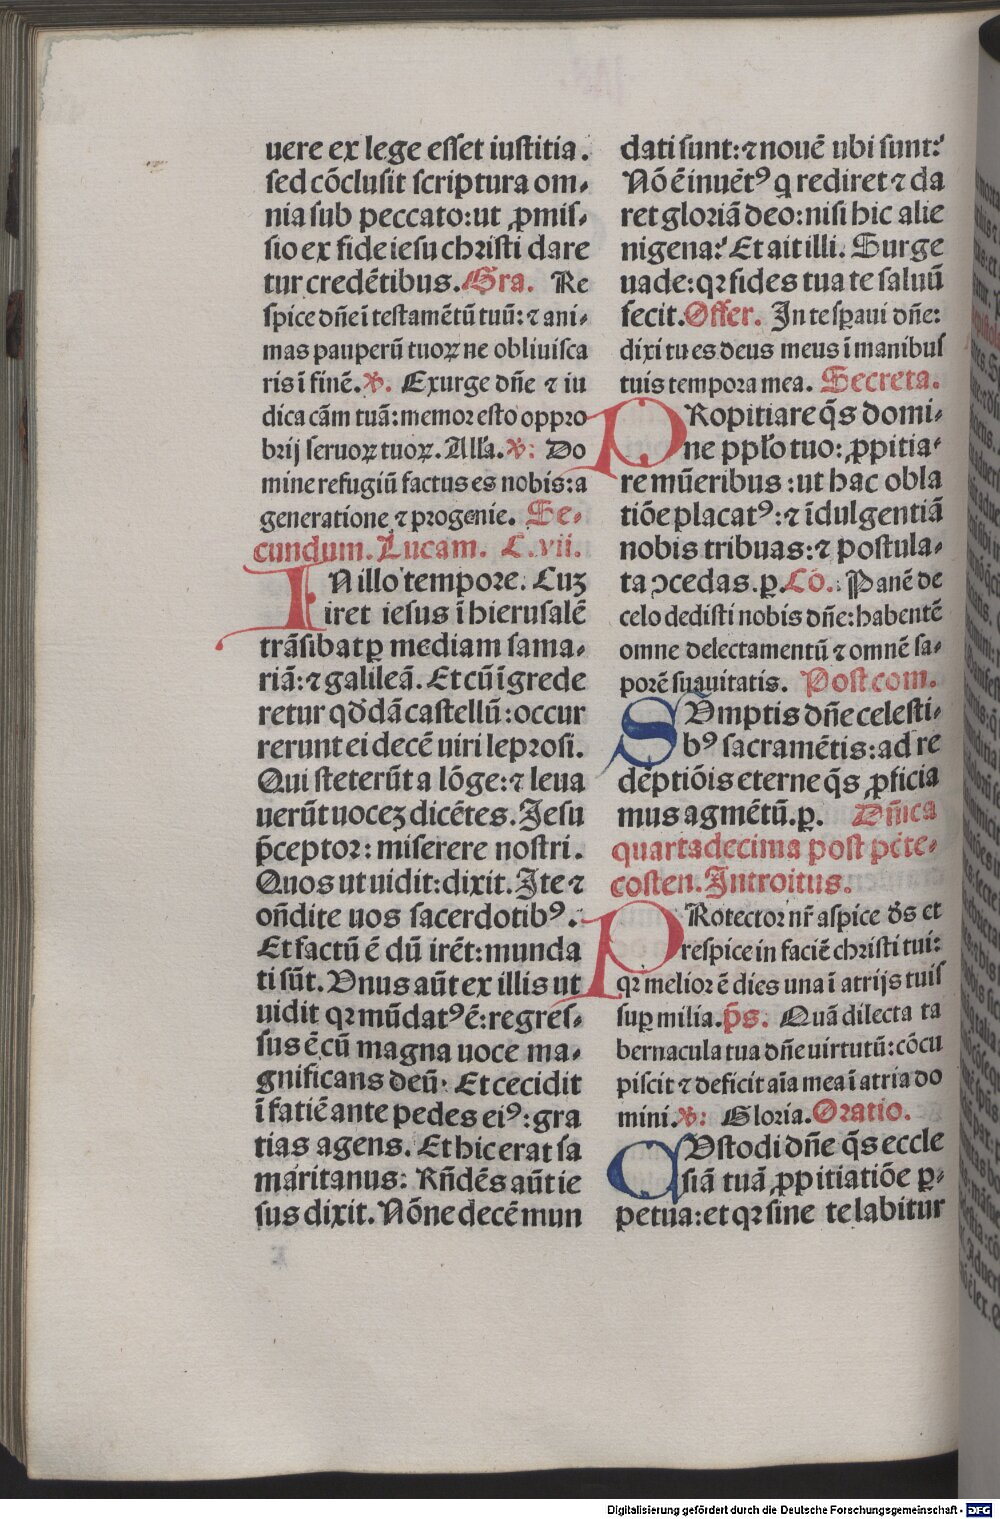 uere ex lege esset iustitia.
sed cōclusit scriptura om-
nia sub peccato: ut ꝓmis-
sio ex fide iesu christi dare
tur credētibus. Gra. Re
spice dñe ī testamētū tuū: ⁊ ani-
mas pauperū tuoꝝ ne obliuisca
ris ī finē. ℣. Exurge dñe ⁊ iu
dica cām tuā: memor esto oppro
brij seruoꝝ tuoꝝ. Alła. ℣: Do
mine refugiū factus es nobis: a
generatione ⁊ progenie. Se-
cundum. Lucam. C. vii.
IN illo tempore. Cuꝫ
iret iesus ī hierusalē
trāsibat ꝑ mediam sama-
riā: ⁊ galileā. Et cū īgrede
retur qđdā castellū: occur
rerunt ei decē uiri leprosi.
Qui steterūt a lōge: ⁊ leua
uerūt uoceꝫ dicētes. Jesu
p̄ceptor: miserere nostri.
Quos ut uidit: dixit. Ite ⁊
oñdite uos sacerdotibꝰ.
Et factū ē dū irēt: munda
ti sūt. Vnus aūt ex illis ut
uidit qꝛ mūdatꝰ ē: regres-
sus ē cū magna uoce ma-
gnificans deū. Et cecidit
ī fatiē ante pedes eiꝰ: gra
tias agens. Et hic erat sa
maritanus: Rñdēs aūt ie
sus dixit. Nōne decē mun
dati sunt: ⁊ nouē ubi sunt?
Nō ē inuētꝰ q rediret ⁊ da
ret gloriā deo: nisi hic alie
nigena? Et ait illi. Surge
uade: qꝛ fides tua te saluū
fecit. Offer. In te sꝑaui dñe:
dixi tu es deus meus ī manibus
tuis tempora mea. Secreta.
PRopitiare q̄s domi-
ne ppło tuo: ꝓpitia-
re mūeribus: ut hac obla
tiōe placatꝰ: ⁊ īdulgentiā
nobis tribuas: ⁊ postula-
ta ↄcedas. ꝑ. Cō. Panē de
celo dedisti nobis dñe: habentē
omne delectamentū ⁊ omnē sa-
porē suauitatis. Post com.
SVmptis dñe celesti-
bꝰ sacramētis: ad re
dēptiōis eterne q̄s ꝓficia
mus agmētū. ꝑ. Dñica
quartadecima post pēte-
costen. Introitus.
PRotector nr̄ aspice đs et
respice in faciē christi tui:
qꝛ melior ē dies una ī atrijs tuis
suꝑ milia. p̄s. Quā dilecta ta
bernacula tua dñe uirtutū: cōcu
piscit ⁊ deficit aīa mea ī atria do
mini. ℣: Gloria. Oratio.
CVstodi dñe q̄s eccle
siā tuā ꝓpitiatiōe ꝑ-
petua: et qꝛ sine te labitur
Digitalisierung gefördert durch die Deutsche Forschungsgemeinschaft - DFG